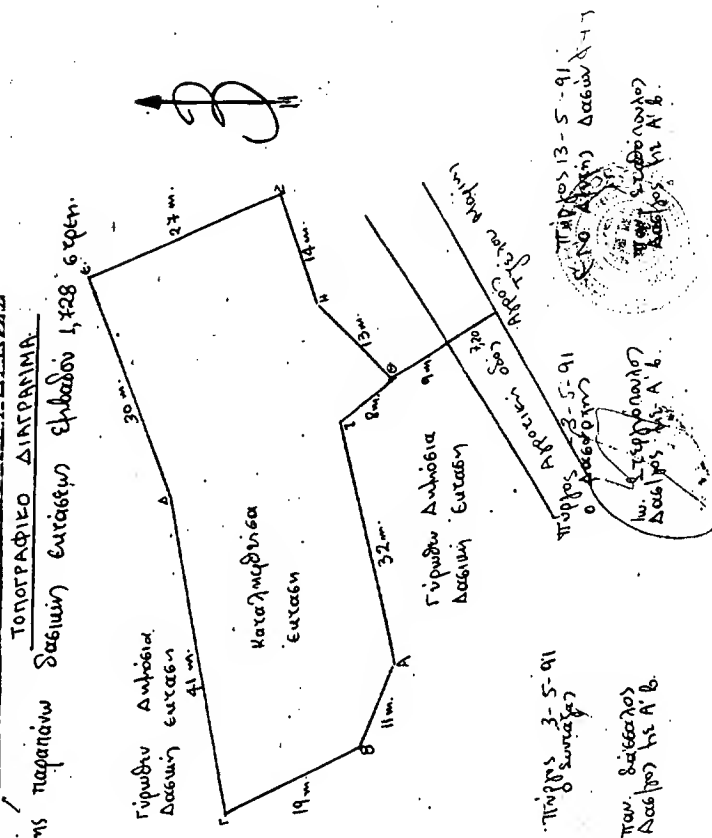 ΤΟΠΟΓΡΑΦΙΚΟ ΔΙΑΓΡΑΜΜΑ
ης παραπάνω δασικής εκτάσεως εμβαδού 1,728 στρεμ.
Γύρωθεν Δημόσια
Δασική έκταση
41 m.
Δ
30 m.
Ε
27 m.
Ζ
14 m.
Η
13 m.
Θ
8 m.
Ι
32 m.
Α
11 m.
Β
19 m.
Γ
Καταληφθείσα
έκταση
9 m
7,20
Γύρωθεν Δημόσια
Δασική έκταση
Αγροτική οδός
Αγρός
Πύργος 3-5-91
Ο Συντάξας
Παν.
Δασ/μος με Α' β.
Πύργος -3-5-91
Ο Δασάρχης
Ιω. Στεργιόπουλος
Δασ/μος με Α' β.
Πύργος 13-5-91
Δασών
Παν. Σταθόπουλος
Δασ/μος με Α' β.